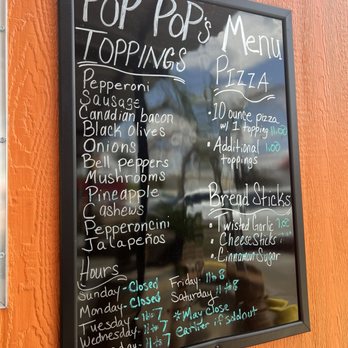 POP POP's Menu
TOPPINGS
Pepperoni
Sausage
Canadian bacon
Black Olives
Onions
Bell peppers
Mushrooms
Pineapple
Cashews
Pepperoncini
Jalapeños
PIZZA
• 10 ounce pizza
w/ 1 topping
• Additional 1.00
toppings
Bread Sticks
• Twisted Garlic
• Cheese Sticks
• Cinnamon Sugar
Hours
Sunday - Closed
Monday - Closed
Tuesday - 11 to 7
Wednesday - 11 to 7
11 to 7
Friday - 11 to 8
Saturday 11 to 8
*May close
earlier if soldout